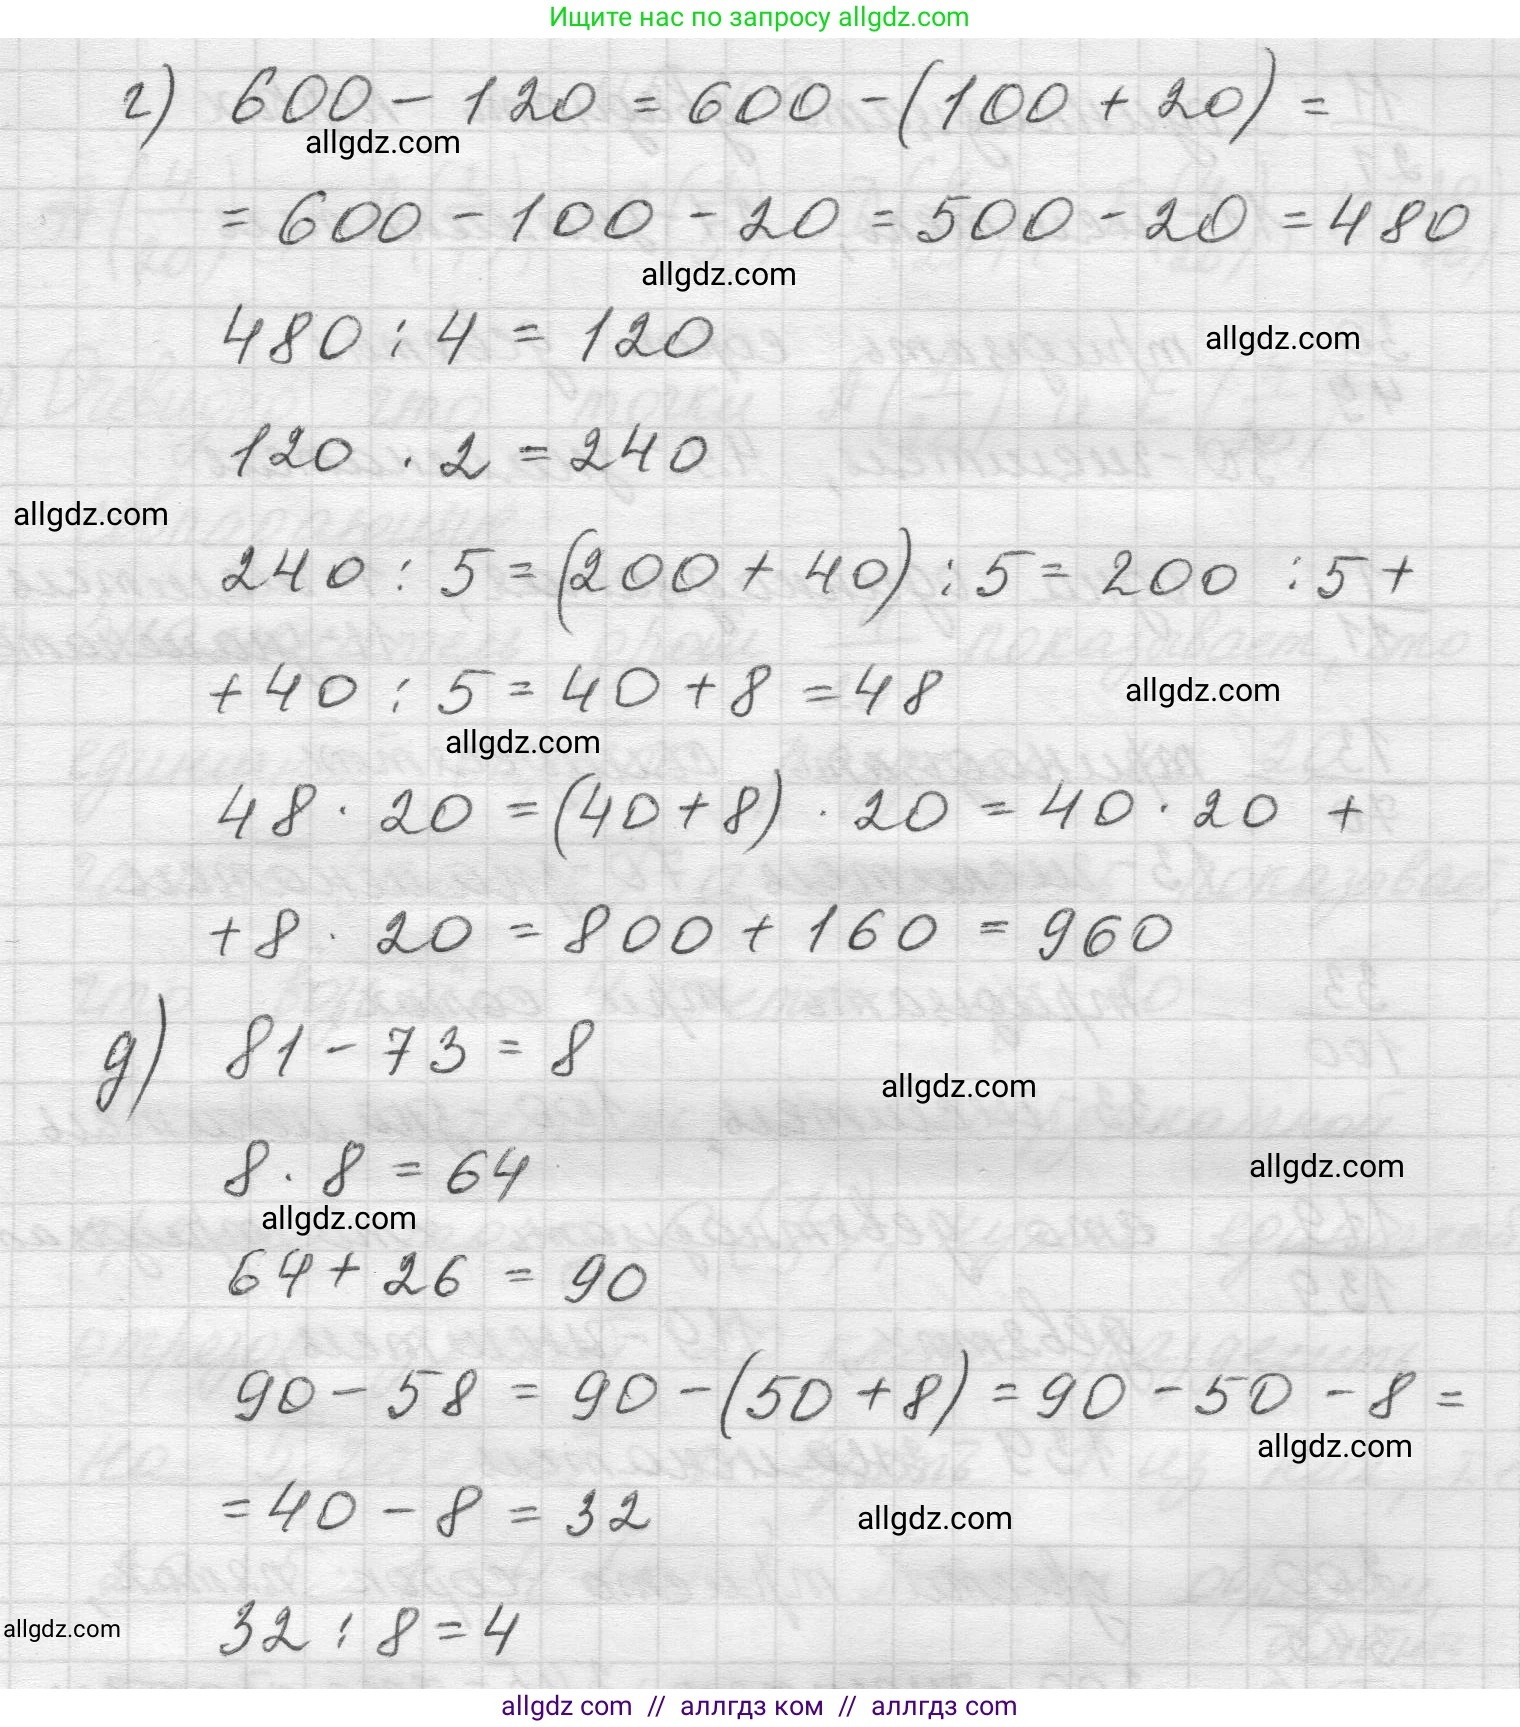 Ищите нас по запросу allgdz.com
г) 600 - 120 = 600 - (100 + 20) =
allgdz.com
= 600 - 100 - 20 = 500 - 20 = 480
allgdz.com
480 : 4 = 120
allgdz.com
120 · 2 = 240
allgdz.com
240 : 5 = (200 + 40) : 5 = 200 : 5 +
+ 40 : 5 = 40 + 8 = 48
allgdz.com
allgdz.com
48 · 20 = (40 + 8) · 20 = 40 · 20 +
+ 8 · 20 = 800 + 160 = 960
д) 81 - 73 = 8
allgdz.com
8 · 8 = 64
allgdz.com
allgdz.com
64 + 26 = 90
90 - 58 = 90 - (50 + 8) = 90 - 50 - 8 =
allgdz.com
= 40 - 8 = 32
allgdz.com
32 : 8 = 4
allgdz.com
allgdz com // аллгдз ком // аллгдз com